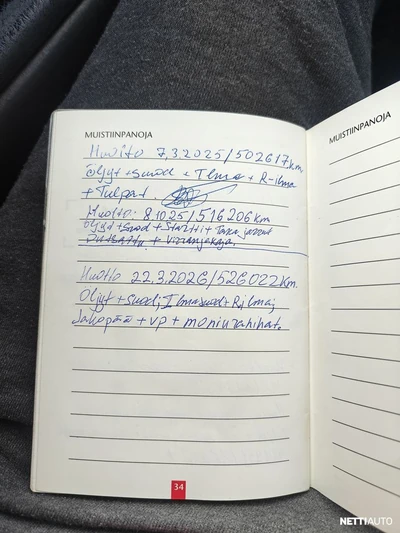 MUISTIINPANOJA
Huolto 7.3.2025/502617km.
Öljyt+suod + Ilma + R-ilma
+ Tulpat.
Huolto: 8.10.25/516206km
Öljyt+suod + Startti + Taka jarrut
+ Virranjakaja.
Huolto 22.3.2026/526022km.
Öljyt+suod; Ilmasuod+R.ilma;
Jakopää + vp + moniurahihat.
34
MUISTIINPANOJA
NETTIAUTO